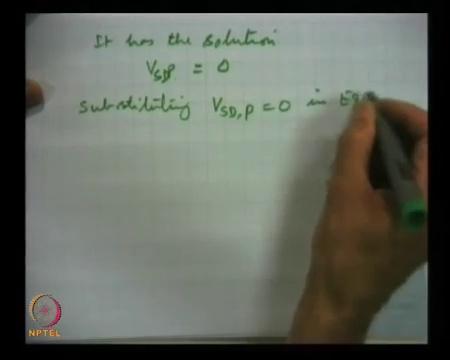 It has the solution
V_SD,P = 0
Substituting V_SD,P = 0 in Eq
NPTEL